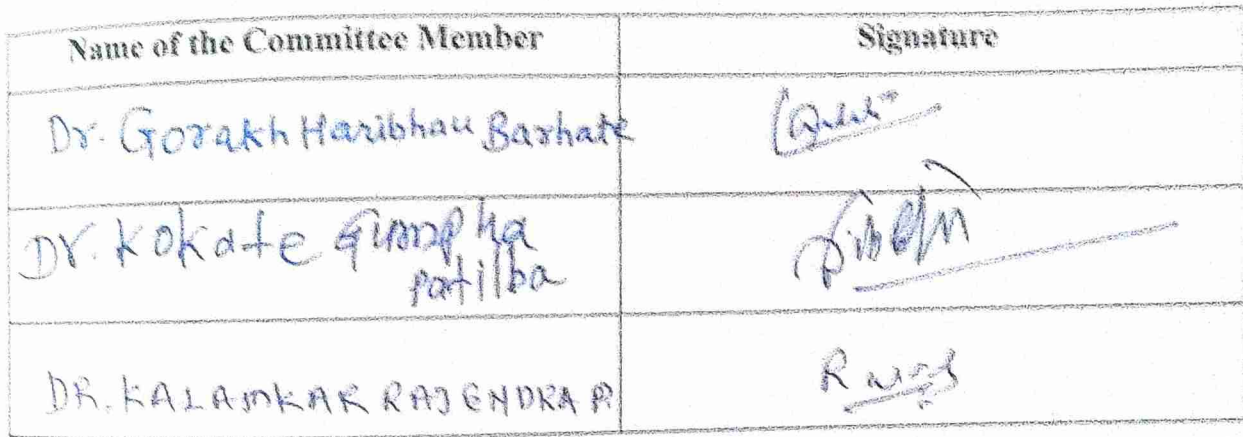 Name of the Committee Member Signature
Dr. Gorakh Haribhau Barhate
Dr. Kokate
Patilba
DR. KALAMKAR RAJENDRA R.